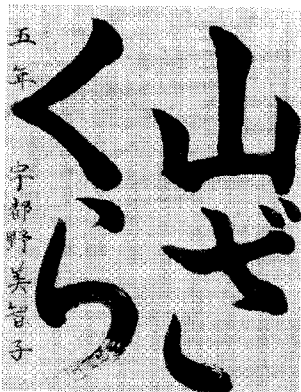 山ざ
くら
五年 宇都野美智子